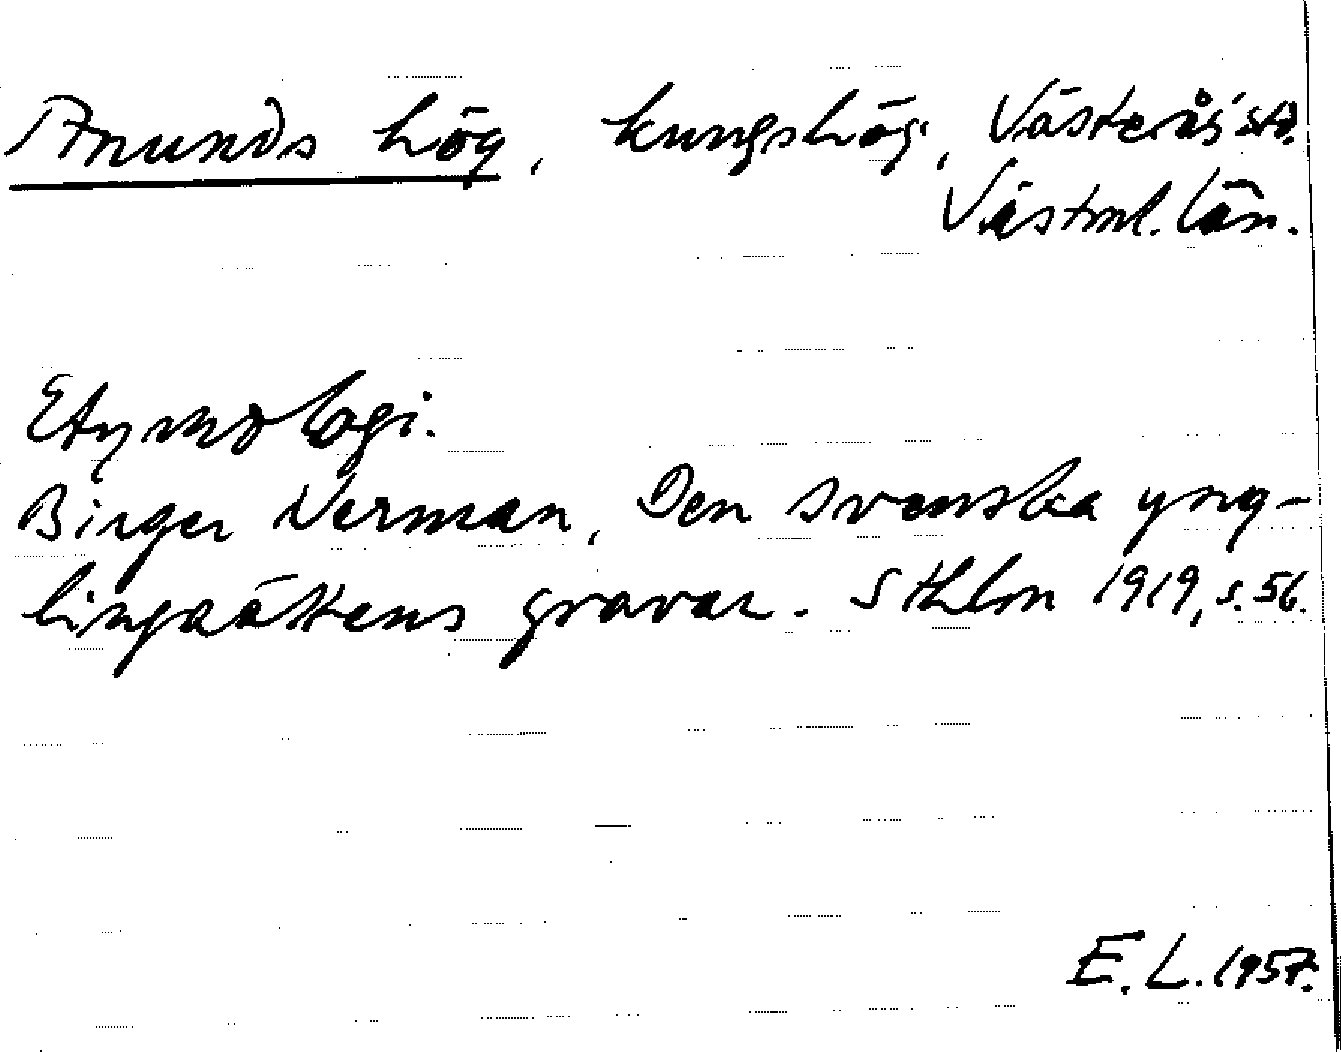 Anunds hög, kungshög, Västerås sta.
Västml. län.
Etymologi.
Birger Nerman, Den svenska yng-
lingaättens gravar. Sthlm 1919, s. 56.
E. L. 1957.